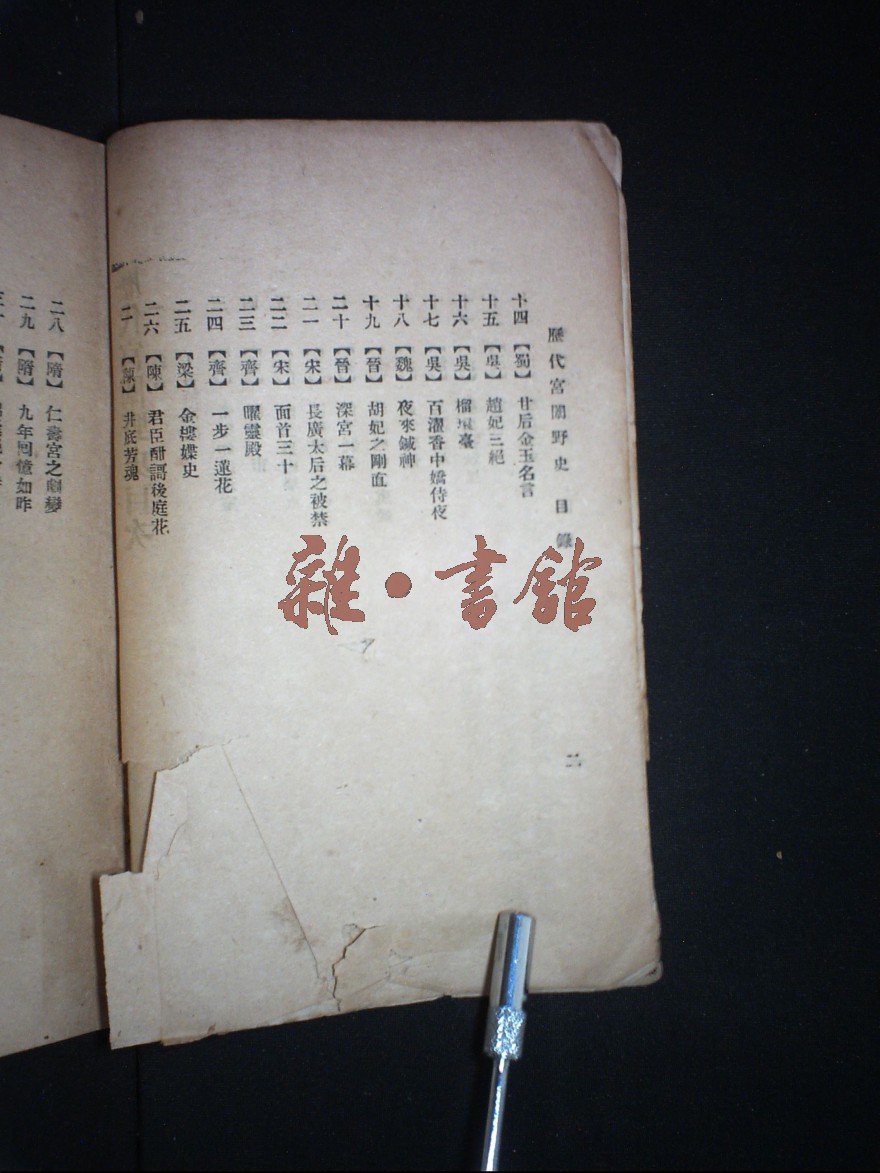 歷代宮闈野史 目錄
十四【蜀】甘后金玉名言
十五【吳】趙妃三絕
十六【吳】榴環臺
十七【吳】百濯香中嬌侍夜
十八【魏】夜來鍼神
十九【晉】胡妃之剛直
二十【晉】深宮一幕
二一【宋】長廣太后之被禁
二二【宋】面首三十
二三【齊】曜靈殿
二四【齊】一步一蓮花
二五【梁】金樓蝶史
二六【陳】君臣酣謌後庭花
【陳】井底芳魂
二
二八【隋】仁壽宮之劇變
二九【隋】九年回憶如昨
雜•書館